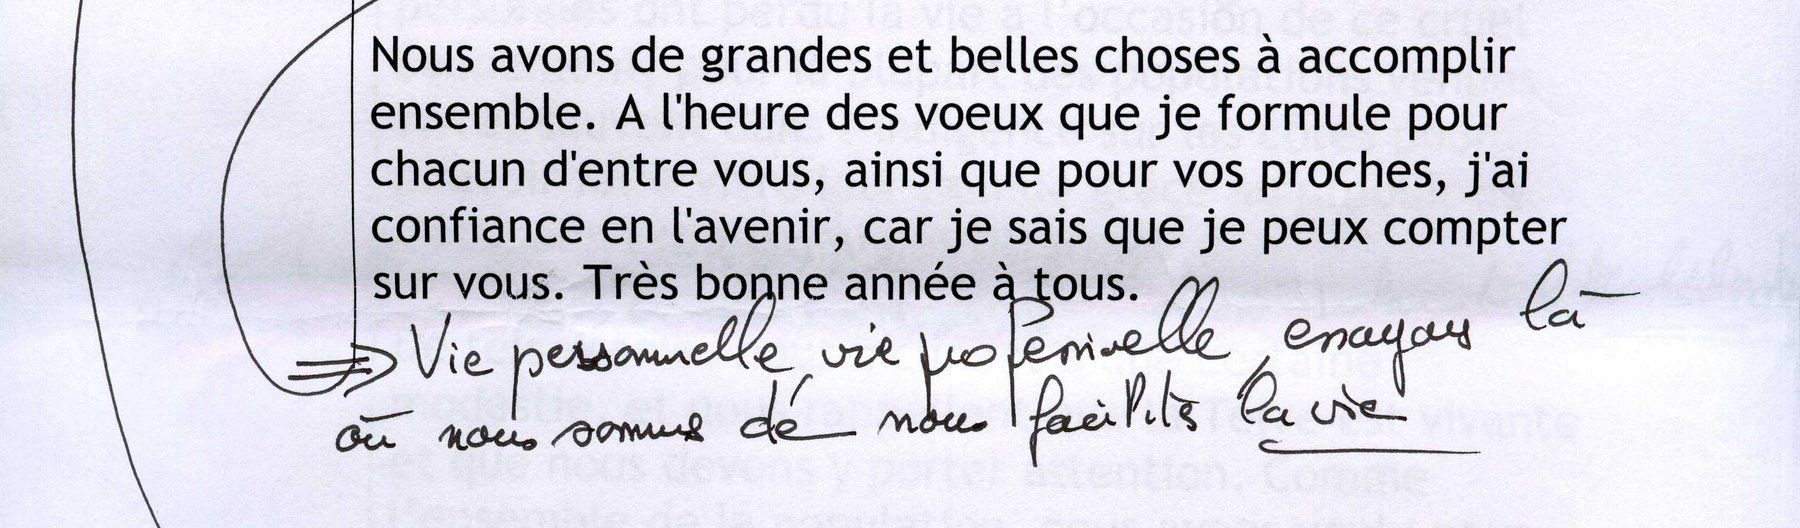 Nous avons de grandes et belles choses à accomplir
ensemble. A l'heure des voeux que je formule pour
chacun d'entre vous, ainsi que pour vos proches, j'ai
confiance en l'avenir, car je sais que je peux compter
sur vous. Très bonne année à tous.
⇒ Vie personnelle, vie professionnelle, essayons là
où nous sommes de nous faciliter la vie